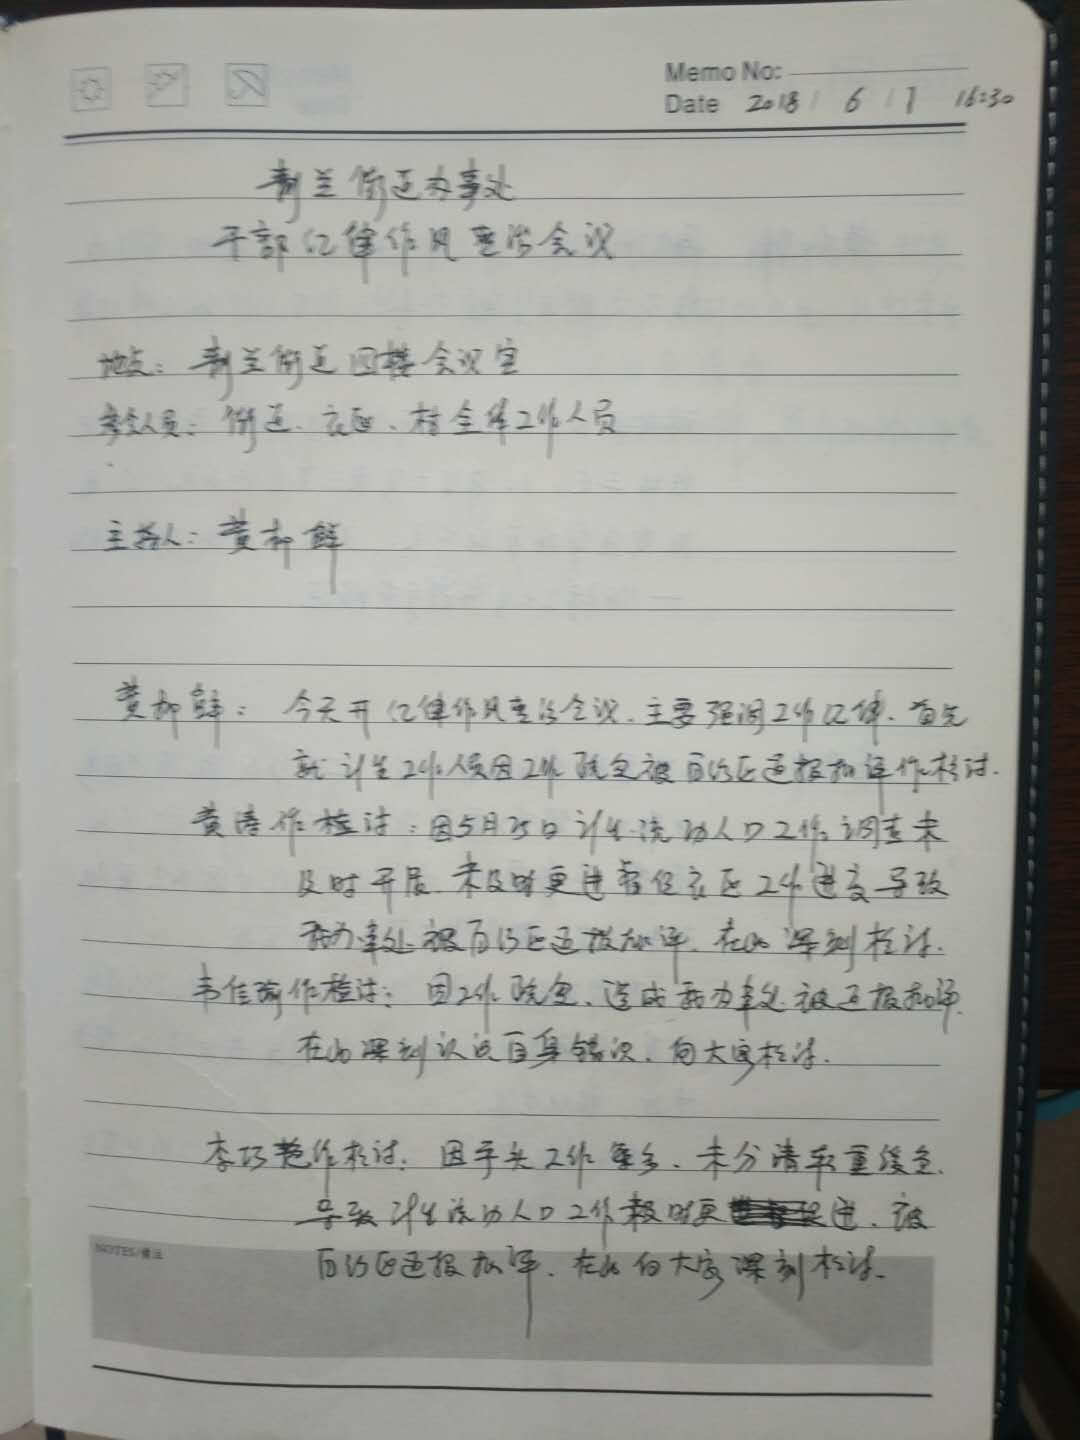 Memo No:
Date 2018 / 6 / 1 16:30
制兰街道办事处
干部纪律作风整治会议
地点：制兰街道四楼会议室
参会人员：街道、社区、村全体工作人员
主持人：黄柳鲜
黄柳鲜：今天开纪律作风整治会议、主要强调工作纪律、首先
就计生工作人员因工作疏忽被百色区通报批评作检讨.
黄涛作检讨：因5月25日计生流动人口工作调查未
及时开展、未及时更进督促社区工作进度导致
我办事处被 区通报批评、在此深刻检讨.
韦佳瑜作检讨：因工作疏忽、造成我办事处被通报批评
在此深刻认识自身错误、向大家检讨.
李巧艳作检讨：因手头工作繁多、未分清轻重缓急.
导致计生流动人口工作 时更 进、被
NOTES/备忘
区通报批评、在此向大家深刻检讨.